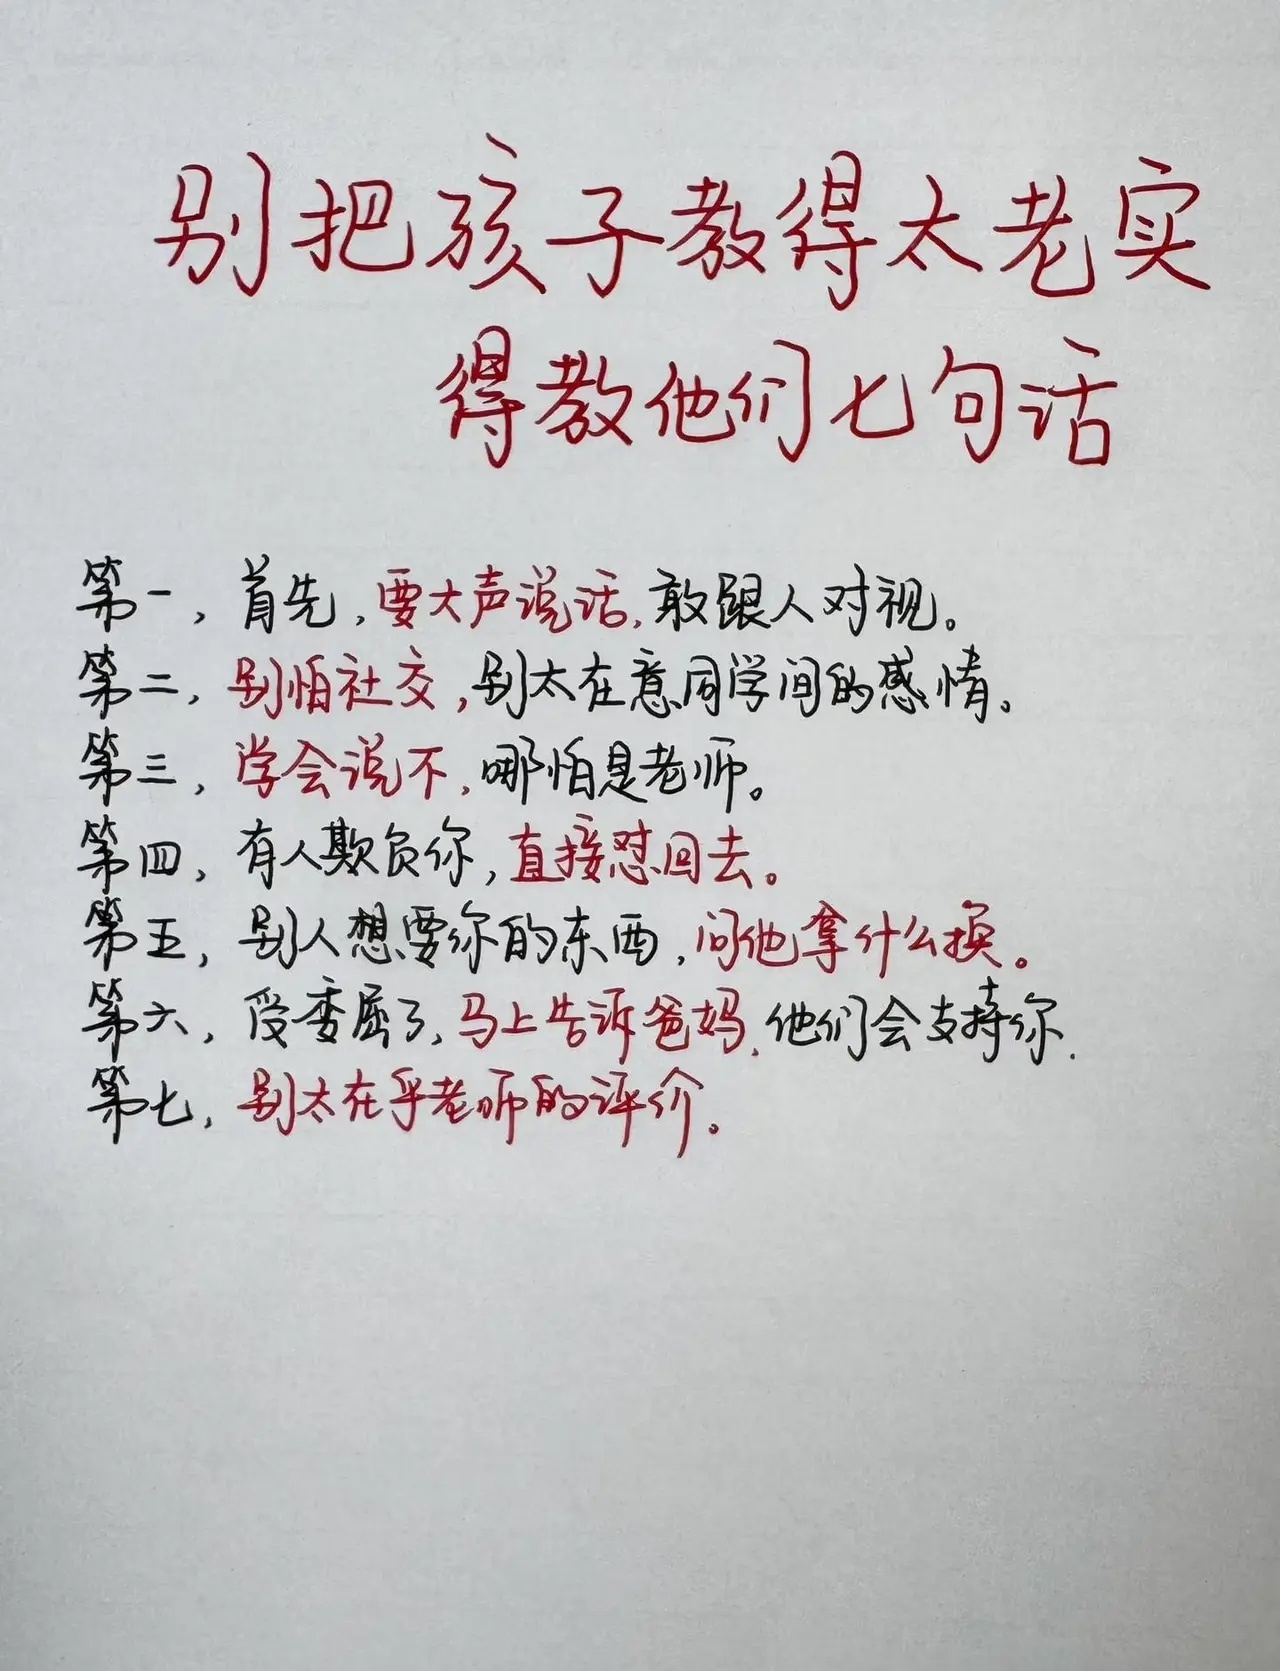 别把孩子教得太老实
得教他们七句话
第一，首先，要大声说话，敢跟人对视。
第二，别怕社交，别太在意同学间的感情。
第三，学会说不，哪怕是老师。
第四，有人欺负你，直接怼回去。
第五，别人想要你的东西，问他拿什么换。
第六，受委屈了，马上告诉爸妈，他们会支持你.
第七，别太在乎老师的评价。